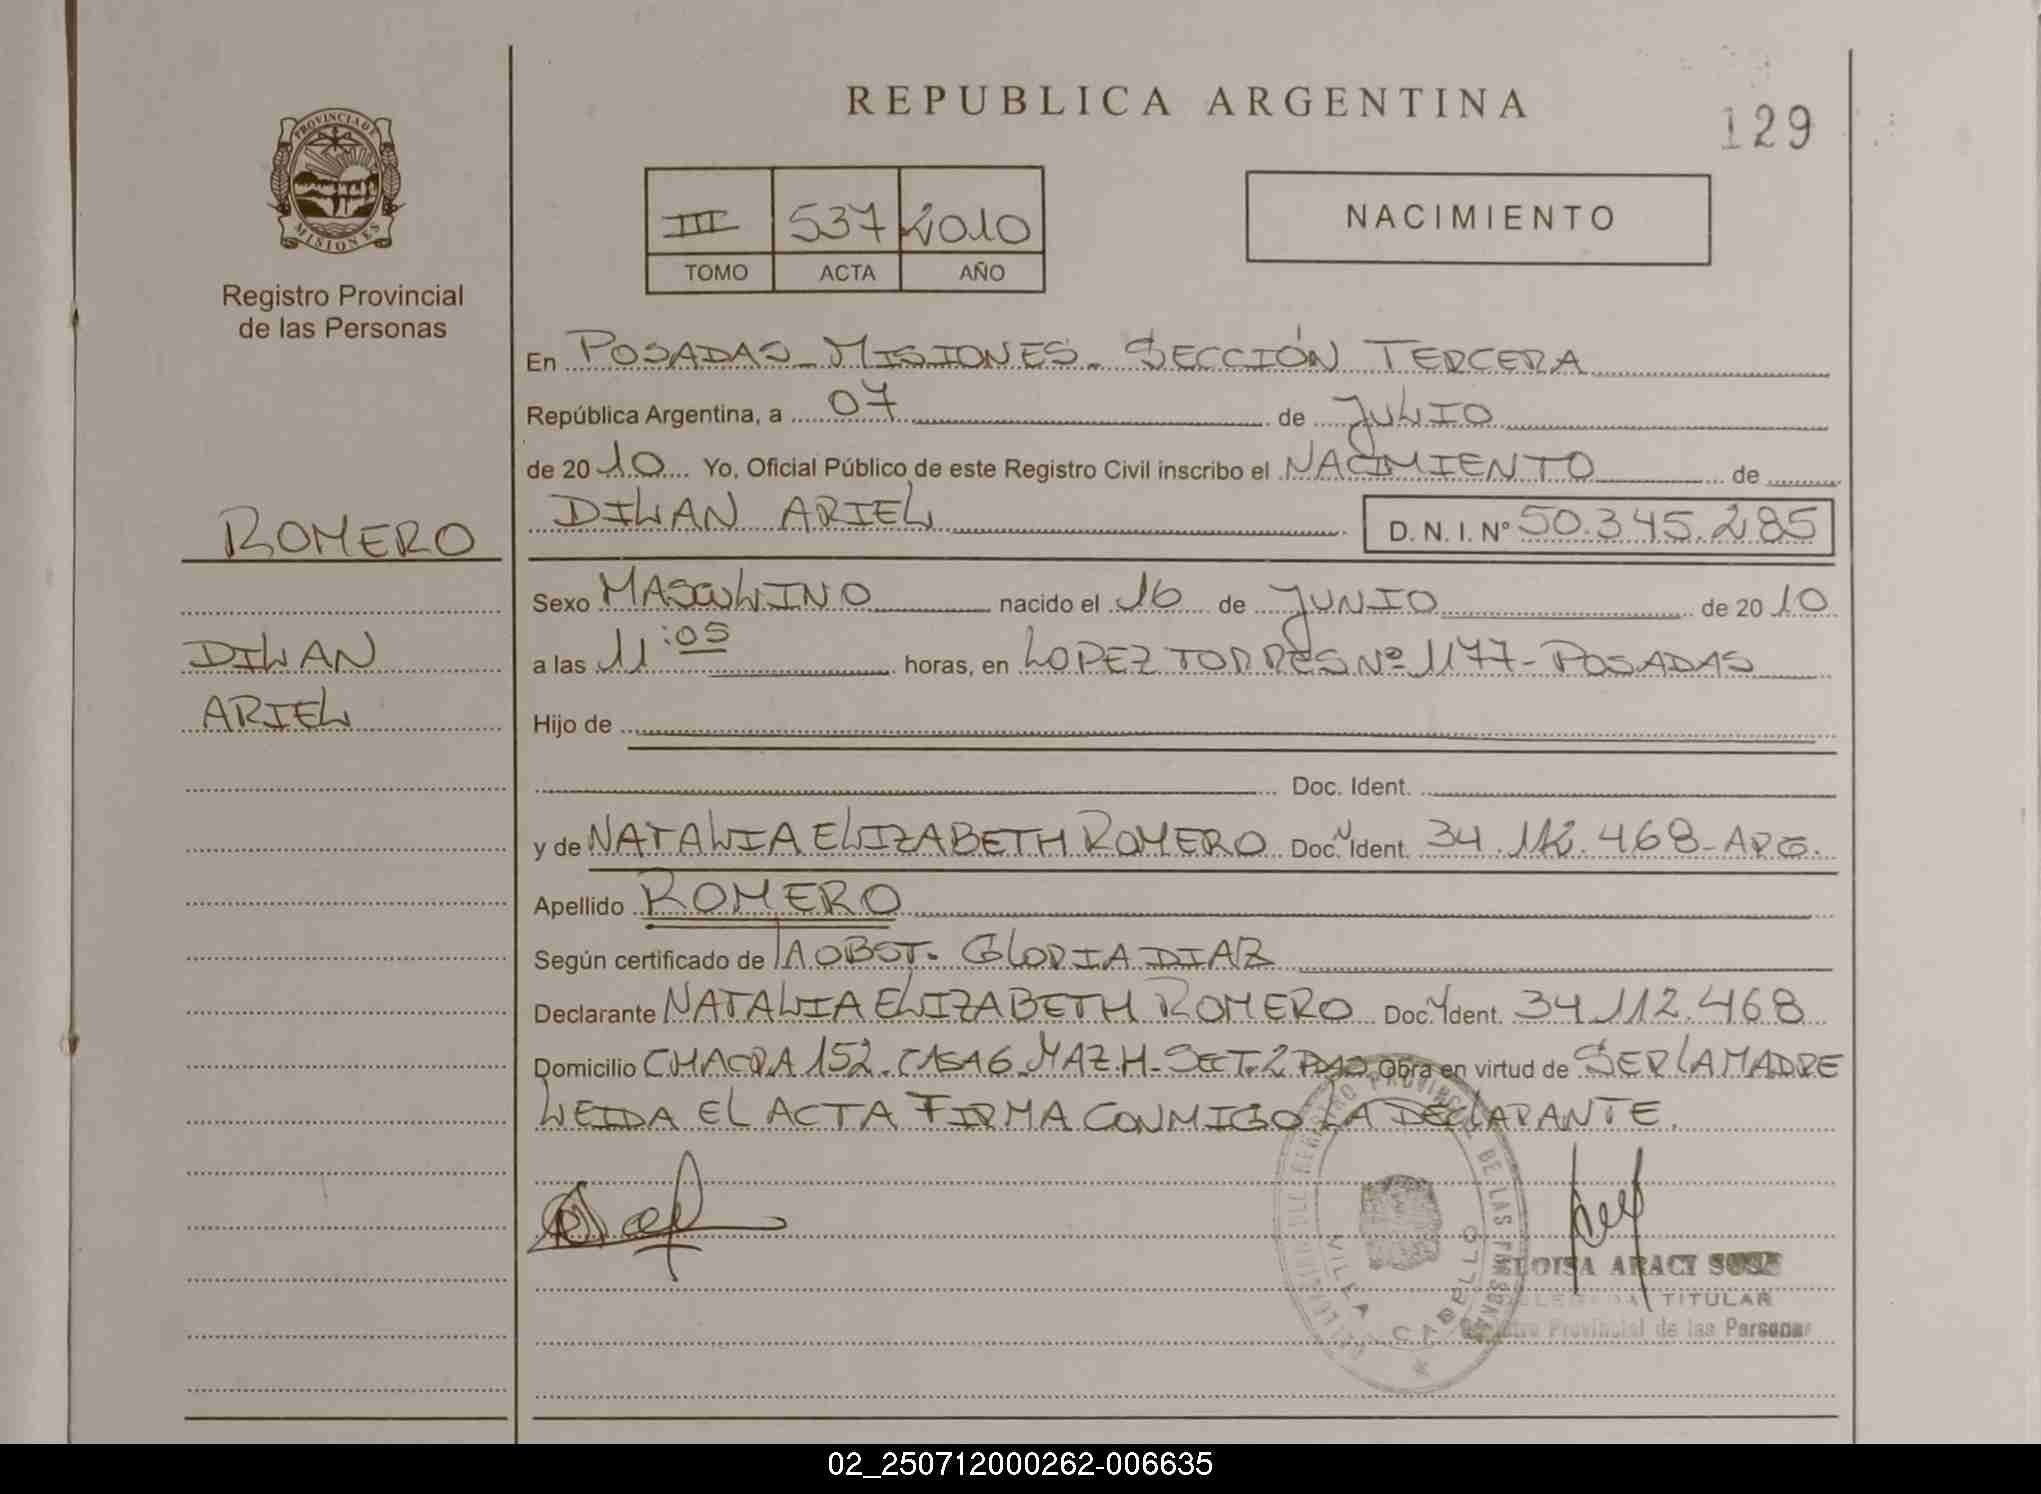 REPUBLICA ARGENTINA
129
PROVINCIA DE
MISIONES
Registro Provincial
de las Personas
III 537 2010
TOMO ACTA AÑO
NACIMIENTO
En POSADAS-MISIONES- SECCIÓN TERCERA
República Argentina, a 07 de JULIO
de 2010 Yo, Oficial Público de este Registro Civil inscribo el NACIMIENTO de
ROMERO
DILAN ARIEL
D. N. I. Nº 50.345.285
Sexo MASCULINO nacido el 16 de JUNIO de 2010
DILAN
a las 11:05 horas, en LOPEZ TORRES Nº 1177-POSADAS
ARIEL
Hijo de
Doc. Ident.
y de NATALIA ELIZABETH ROMERO Doc. Ident. 34.112.468-ARG.
Apellido ROMERO
Según certificado de LA OBST. GLORIA DIAZ
Declarante NATALIA ELIZABETH ROMERO Doc. Ident. 34.112.468
Domicilio CHACRA 152. CASA 6 MAZ.H-SECT.2 PDAS Obra en virtud de SER LA MADRE
LEIDA EL ACTA FIRMA CONMIGO LA DECLARANTE.
REGISTRO PROVINCIAL DE LAS PERSONAS
VILLA CABELLO
ELOISA ARACI
TITULAR
Provincial de las Personas
02_250712000262-006635